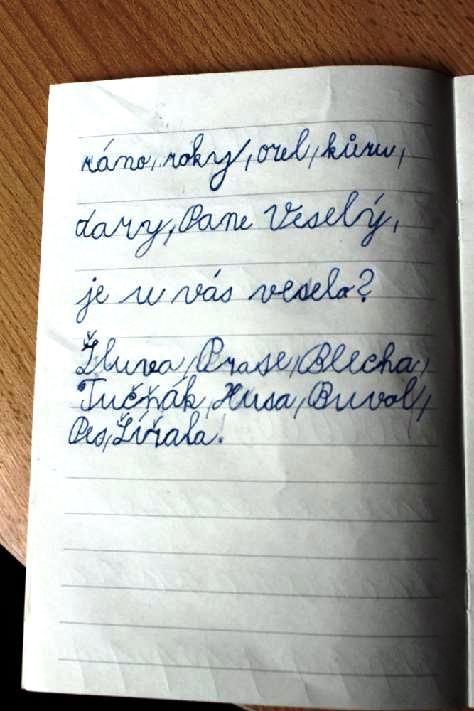 ráno, roky, orel, kůru,
dary, Pane Veselý,
je u vás veselo?
Žluva, Prase, Blecha,
Tučňák, Husa, Buvol,
Pes, Žížala.